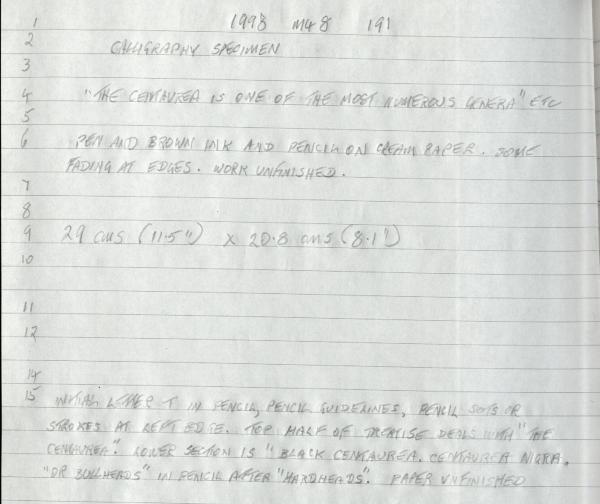 1 1993 M48 191
2 CALLIGRAPHY SPECIMEN
3
4 "THE CENTAUREA IS ONE OF THE MOST NUMEROUS GENERA" ETC
5
6 PEN AND BROWN INK AND PENCIL ON CREAM PAPER. SOME
FADING AT EDGES. WORK UNFINISHED.
7
8
9 29 cms (11.5") x 20.8 cms (8.1")
10
11
12
14
15 INITIAL LETTER T IN PENCIL, PENCIL GUIDELINES, PENCIL DOTS OR
STROKES AT LEFT EDGE. TOP HALF OF TREATISE DEALS WITH "THE
CENTAUREA". LOWER SECTION IS "BLACK CENTAUREA. CENTAUREA NIGRA.
"OR BULLHEADS" IN PENCIL AFTER "HARDHEADS". PAPER UNFINISHED